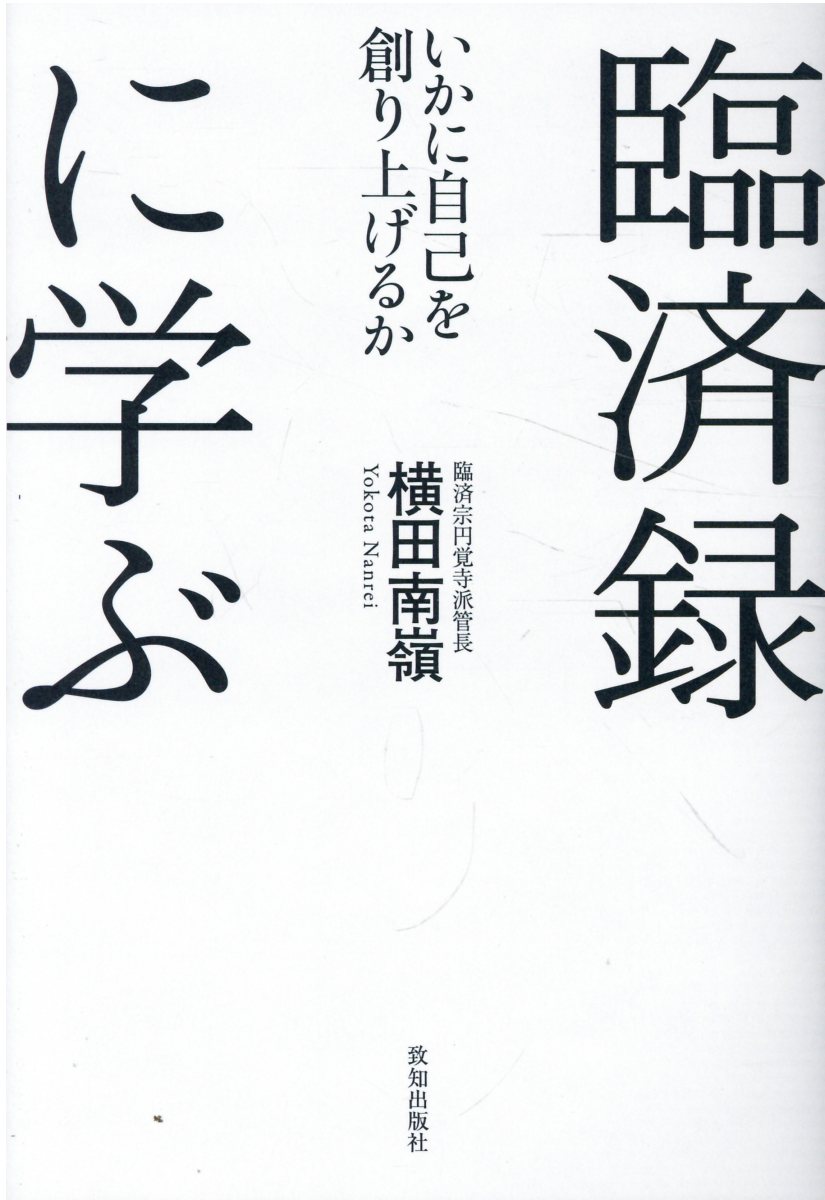 臨済録
に学ぶ
いかに自己を
創り上げるか
臨済宗円覚寺派管長
横田南嶺
Yokota Nanrei
致知出版社